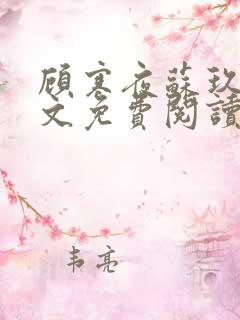 顾寒夜蘇玖
文免費閱讀
韦亮